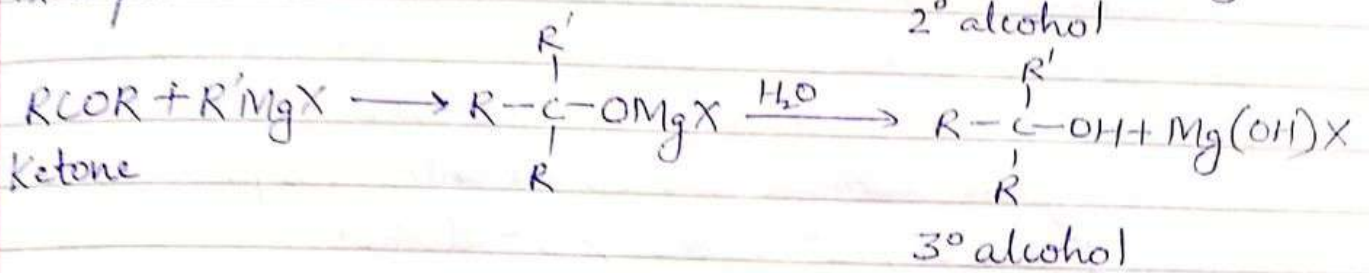 2° alcohol
R' R'
RCOR + R'MgX ⟶ R-C-OMgX H₂O⟶ R-C-OH + Mg(OH)X
Ketone R R
3° alcohol